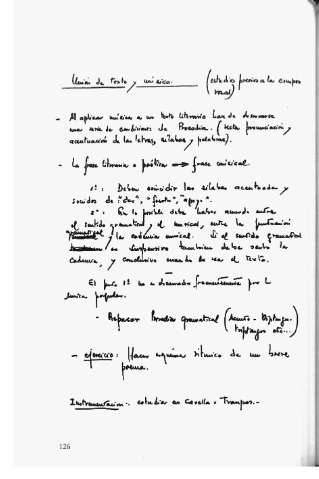 Unión de Texto y música. (estudio previo a la compos.
vocal)
- Al aplicar música a un texto literario han de observarse
una serie de condiciones de Prosodia. (recta pronunciación y
acentuación de las letras, sílabas y palabras).
- La frase literaria o poética frase musical.
1º: Deben coincidir las sílabas acentuadas y
sonidos de "fuerte", "apoy."
2º: En lo posible debe haber acuerdo entre
el sentido gramatical y el musical, entre la puntuación
gramatical y la cadencia musical. Si el sentido gramatical
es suspensivo también debe serlo la
cadencia, y conclusivo cuando lo sea el texto.
El 1º no es observado frecuentemente por la
música popular.
- Repasar Prosodia gramatical (Acento - Diptongo -
triptongos etc...)
- ejercicio: Hacer esquema rítmico de un breve
poema.
Instrumentación:- estudiar en Casella - Trompas.-
126